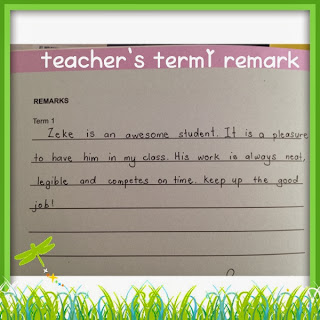 teacher's term1 remark
REMARKS
Term 1
Zeke is an awesome student. It is a pleasure
to have him in my class. His work is always neat,
legible and competes on time. keep up the good
job!